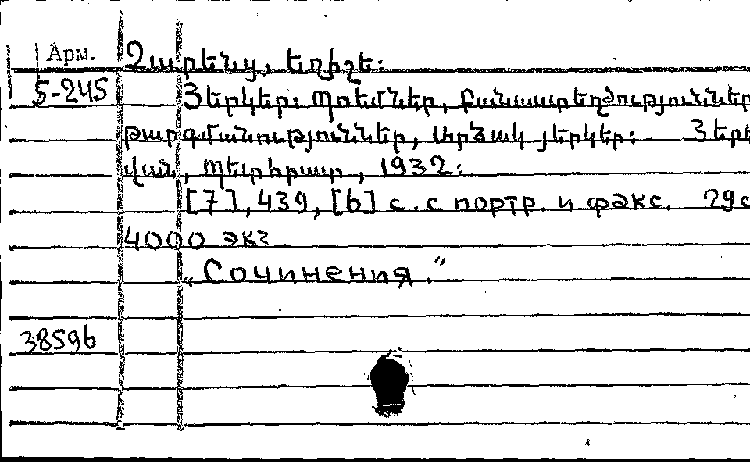 Арм. Չարենց, Եղիշե։
5-245 Յերկեր։ Պոեմներ, բանաստեղծություններ
թարգմանություններ, արձակ յերկեր։ Յեր
վան, Պետհրատ, 1932։
[7], 439, [6] с. с портр. и факс. 29с
4000 экз
„Сочинения.“
38596